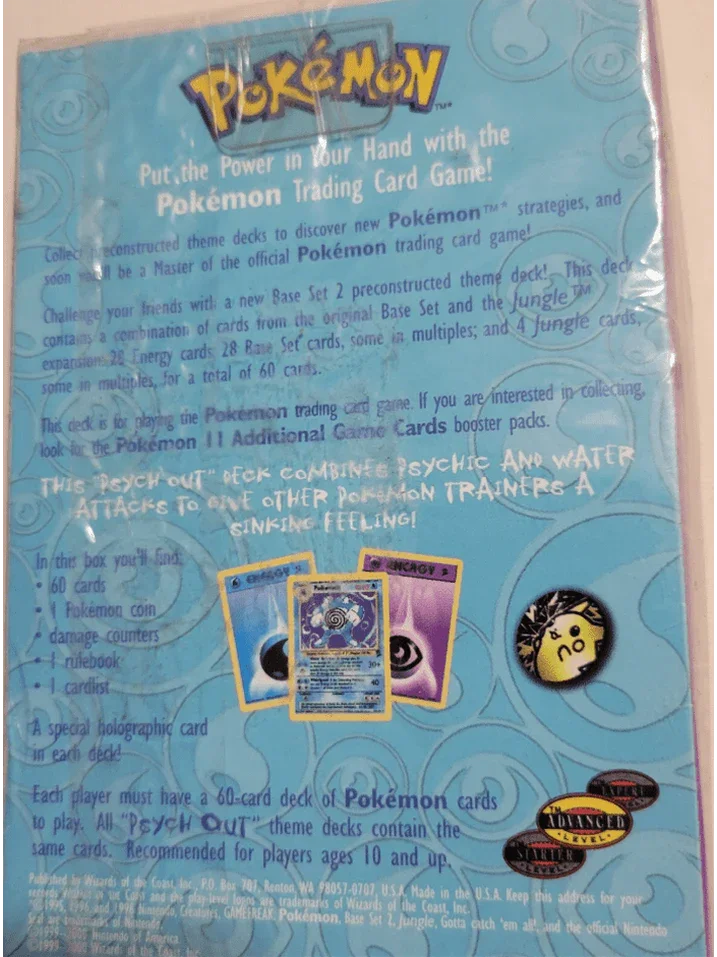 POKéMON
TM
Put the Power in Your Hand with the
Pokémon Trading Card Game!
Collect preconstructed theme decks to discover new Pokémon™* strategies, and
soon you'll be a Master of the official Pokémon trading card game!
Challenge your friends with a new Base Set 2 preconstructed theme deck! This deck
contains a combination of cards from the original Base Set and the Jungle™
expansion: 28 Energy cards, 28 Base Set cards, some in multiples; and 4 Jungle cards,
some in multiples, for a total of 60 cards.
This deck is for playing the Pokémon trading card game. If you are interested in collecting,
look for the Pokémon 11 Additional Game Cards booster packs.
THIS "PSYCH OUT" DECK COMBINES PSYCHIC AND WATER
ATTACKS TO GIVE OTHER POKéMON TRAINERS A
SINKING FEELING!
In this box you'll find:
• 60 cards
• 1 Pokémon coin
• damage counters
• 1 rulebook
• 1 cardlist
ENERGY
ENERGY
20+
40
A special holographic card
in each deck!
Each player must have a 60-card deck of Pokémon cards
to play. All "PSYCH OUT" theme decks contain the
same cards. Recommended for players ages 10 and up.
EXPERT
TM
ADVANCED
LEVEL
STARTER
LEVEL
Published by Wizards of the Coast, Inc., P.O. Box 707, Renton, WA 98057-0707, U.S.A. Made in the U.S.A. Keep this address for your
records. Wizards of the Coast and the play-level logos are trademarks of Wizards of the Coast, Inc.
©1995, 1996, and 1998 Nintendo, Creatures, GAMEFREAK. Pokémon, Base Set 2, Jungle, Gotta catch 'em all!, and the official Nintendo
Seal are trademarks of Nintendo.
©1999–2000 Nintendo of America.
©1999–2000 Wizards of the Coast, Inc.